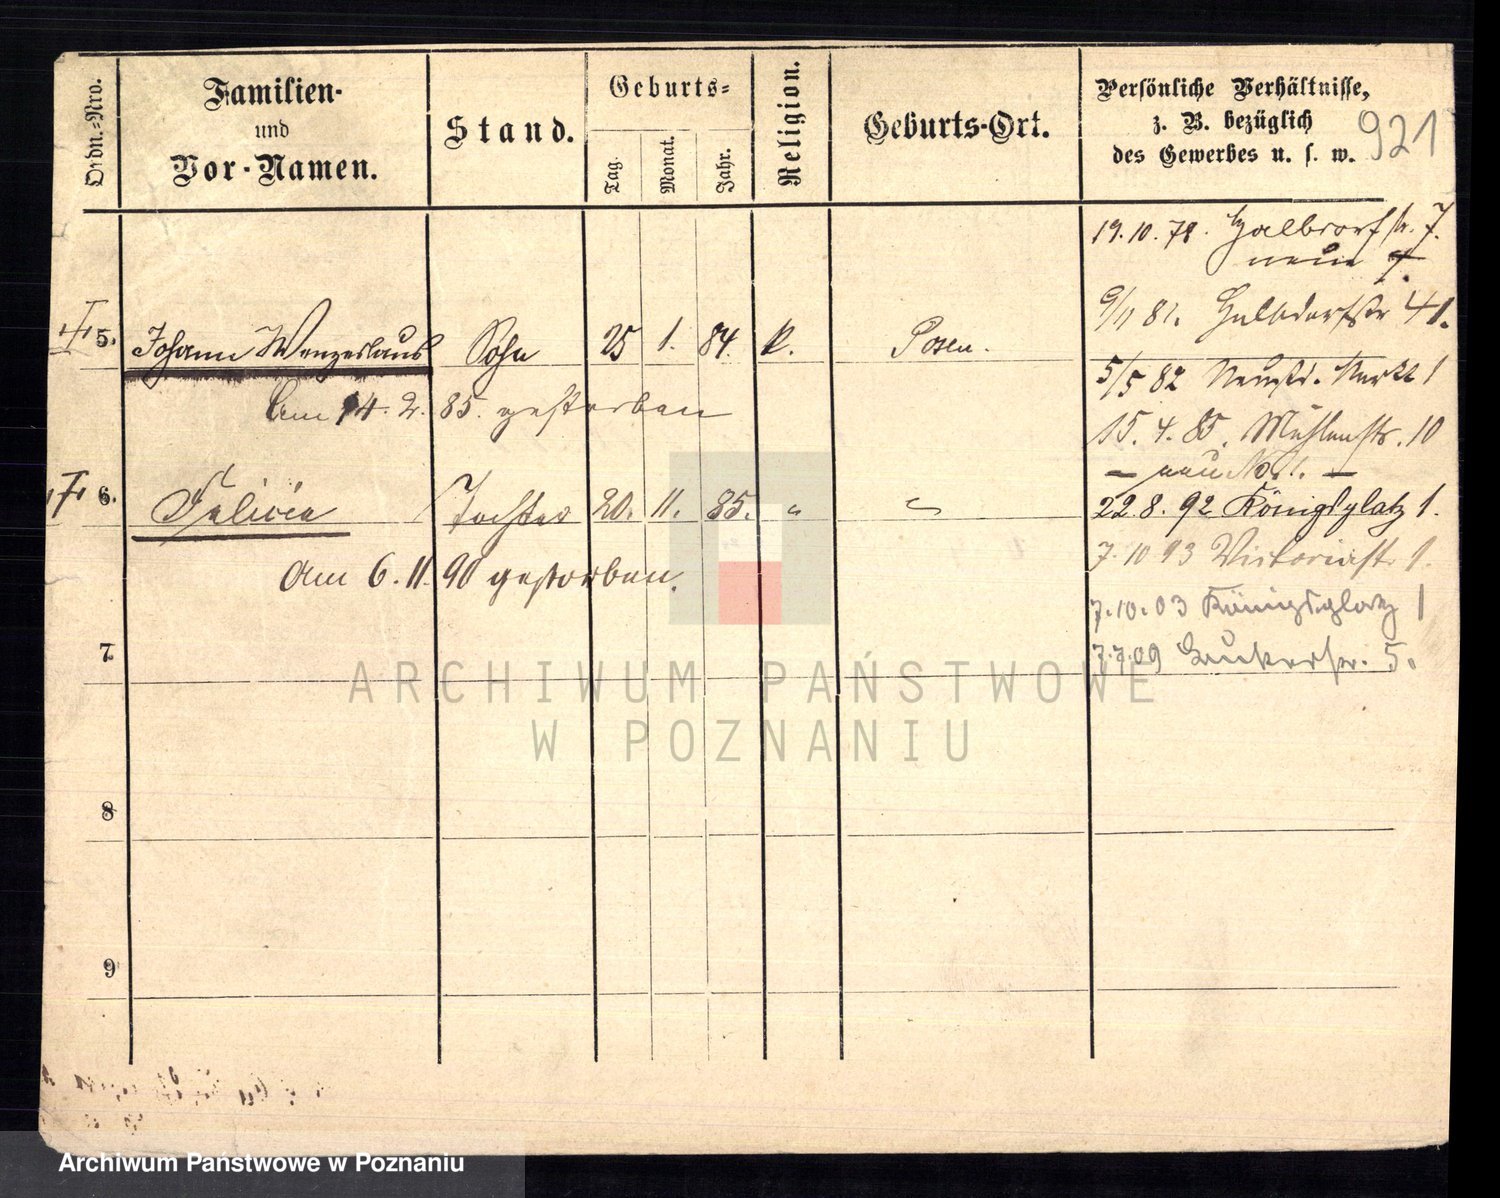 Ordn.-Nro.
Familien-
und
Vor-Namen.
Stand.
Geburts-
Tag.
Monat.
Jahr.
Religion.
Geburts-Ort.
Persönliche Verhältnisse,
z. B. bezüglich
des Gewerbes u. s. w.
921
19.10.78. Halbdorfstr. 7.
neue 7.
9/11 81. Halbdorfstr 41.
5. Johann Wenzeslaus Sohn 25 1. 84. k. Posen.
5/5 82 Neustdt. Markt 1
Am 14. 2. 85. gestorben
15. 4. 85. Mühlenstr. 10
— neu No. 1. —
6. Felicia Tochter 20. 11. 85. " "
22.8.92 Königsplatz 1.
7.10 93 Victoriastr
Am 6. 11. 90 gestorben.
7.10.03 Königsplatz 1
7
7.7.09 5.
8
9
ARCHIWUM PAŃSTWOWE
W POZNANIU
Archiwum Państwowe w Poznaniu